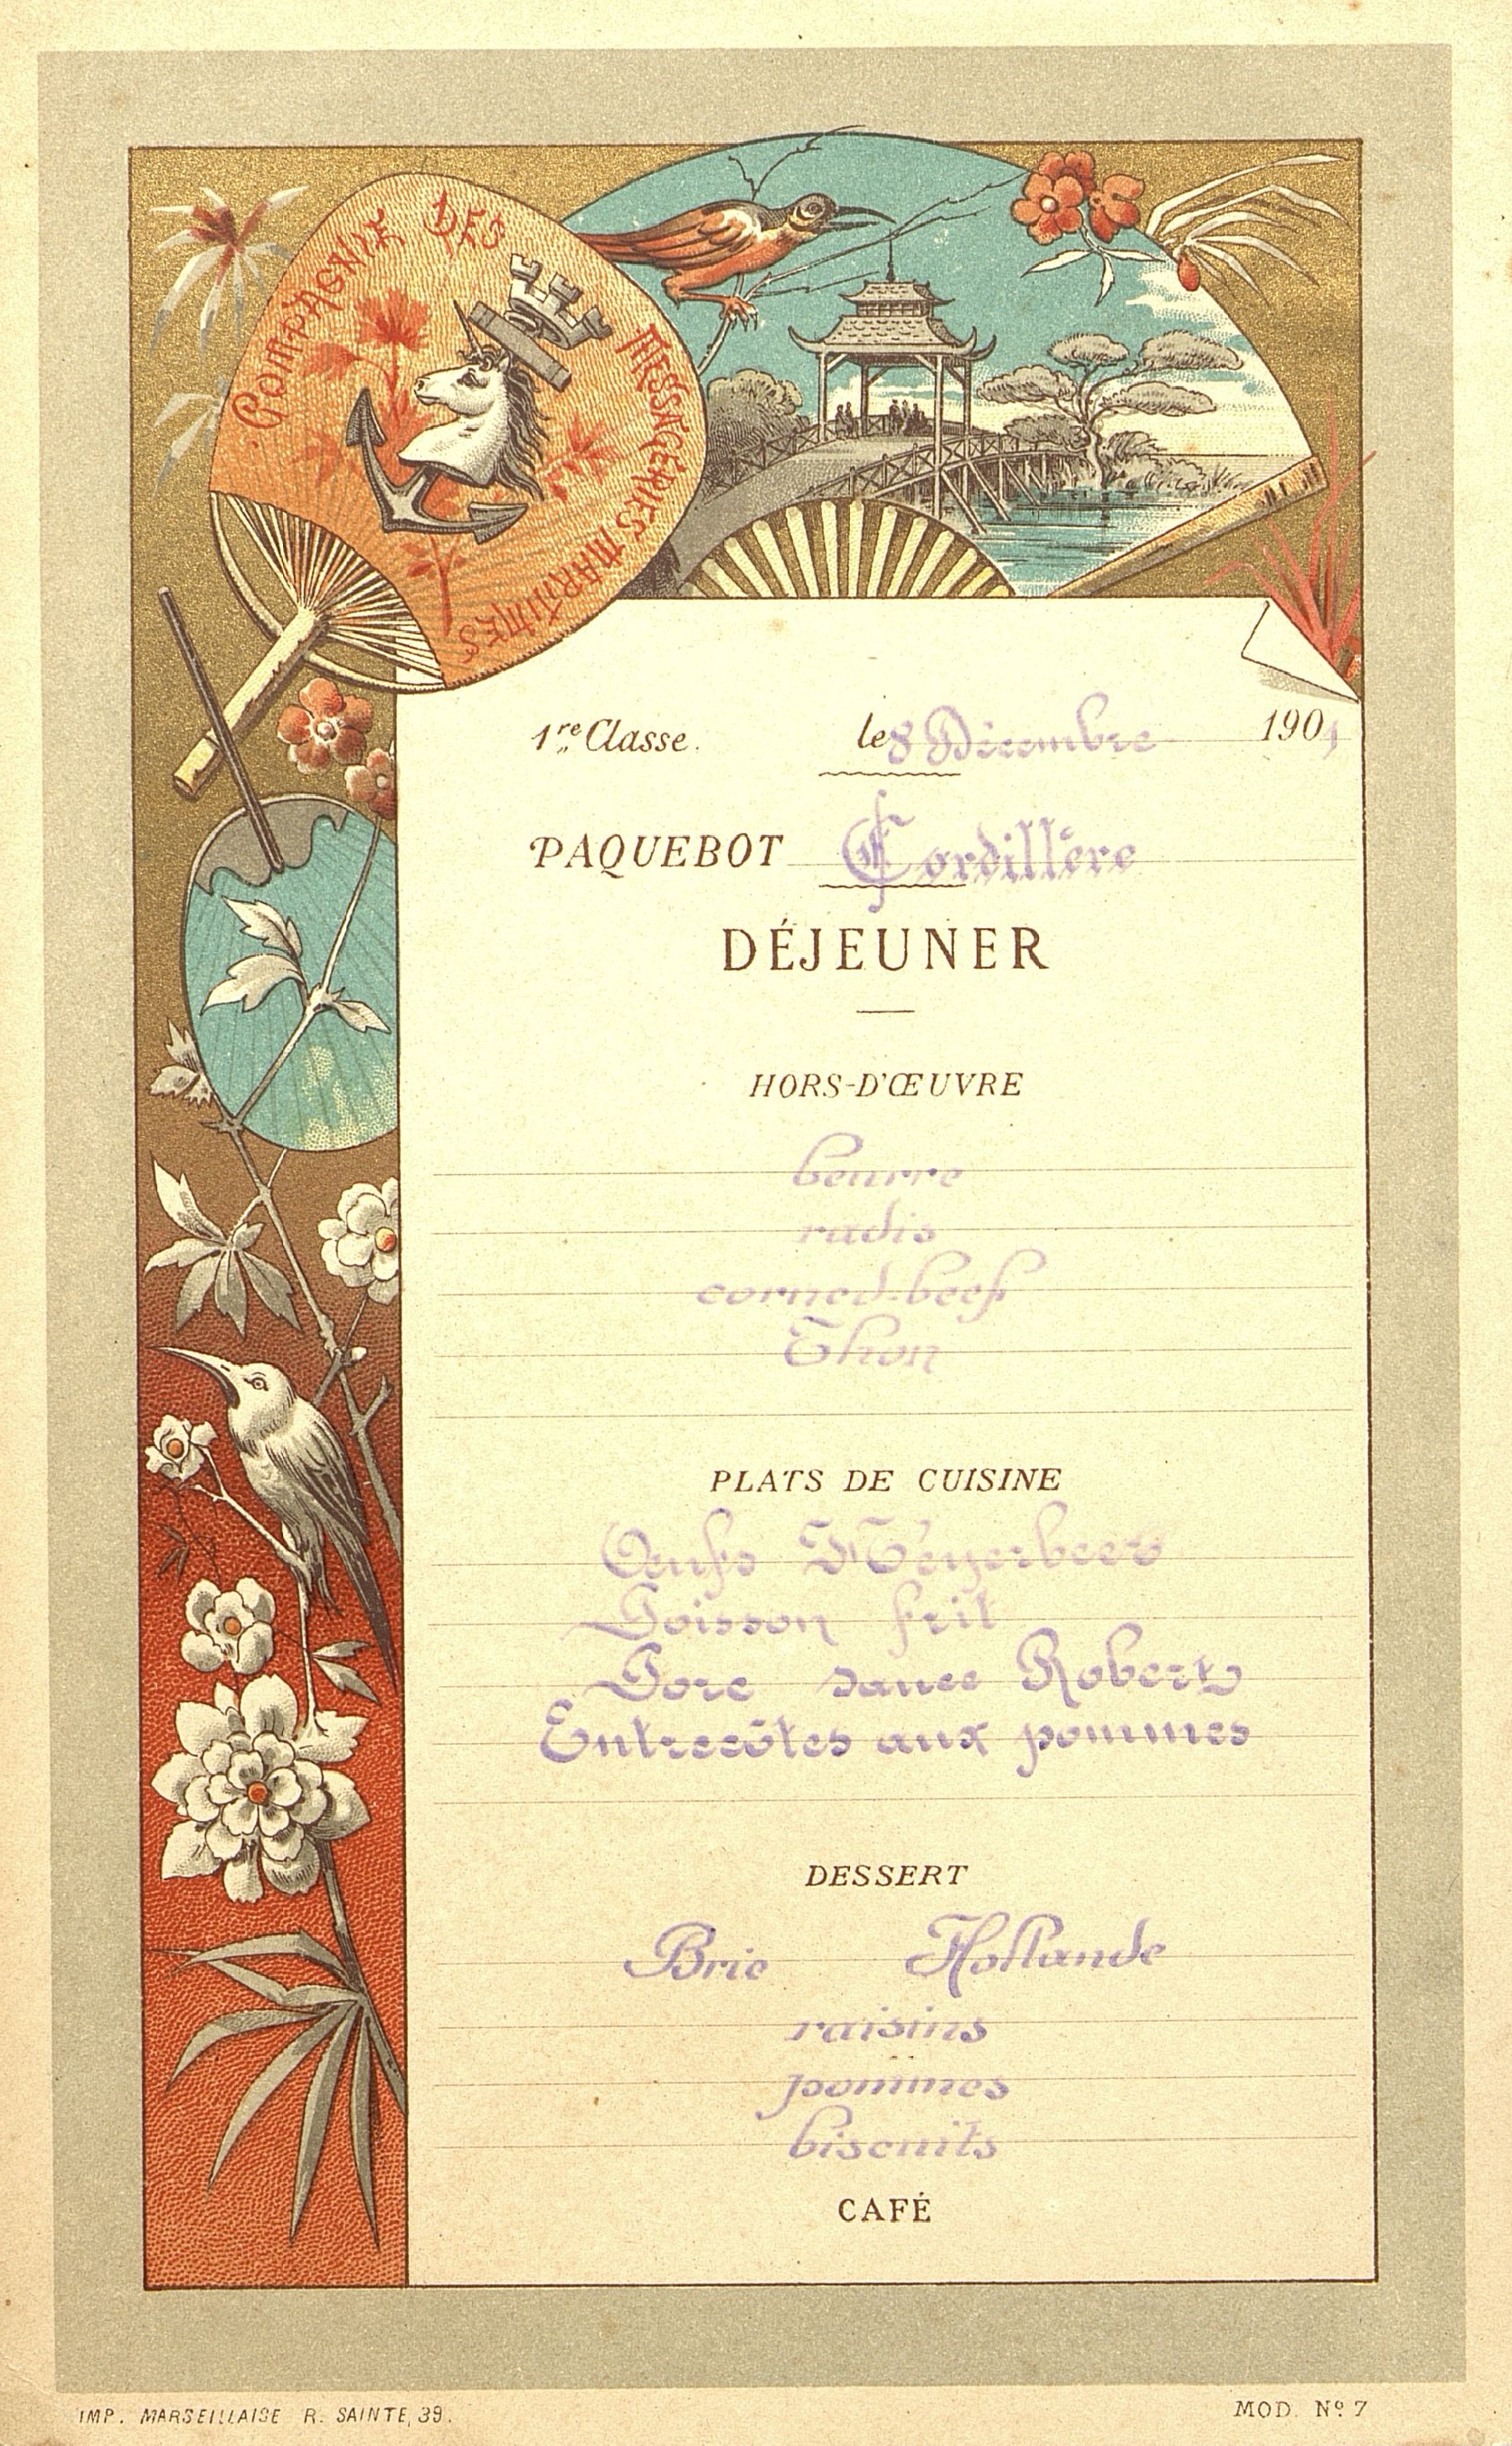 COMPAGNIE DES MESSAGERIES MARITIMES
1re Classe. le 8 Décembre 190
PAQUEBOT Cordillère
DÉJEUNER
HORS-D'ŒUVRE
beurre
radis
corned-beef
Thon
PLATS DE CUISINE
Œufs Meyerbeer
Poisson frit
Porc sauce Robert
Entrecôtes aux pommes
DESSERT
Brie Hollande
raisins
pommes
biscuits
CAFÉ
IMP. MARSEILLAISE R. SAINTE, 39. MOD. Nº 7